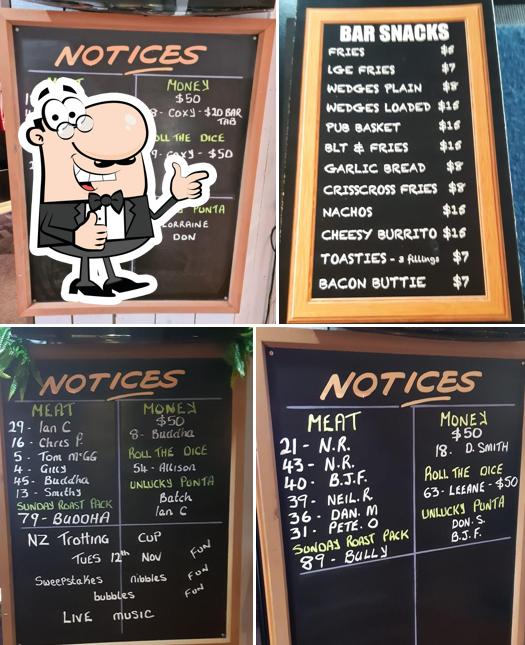 NOTICES
MONEY
$50
8 - COXY - $20 BAR
TAB
ROLL THE DICE
9 - COXY - $50
PUNTA
LORRAINE
DON
BAR SNACKS
FRIES $6
LGE FRIES $7
WEDGES PLAIN $8
WEDGES LOADED $16
PUB BASKET $16
BLT & FRIES $16
GARLIC BREAD $8
CRISSCROSS FRIES $8
NACHOS $16
CHEESY BURRITO $16
TOASTIES - 3 fillings $7
BACON BUTTIE $7
NOTICES
MEAT
29 - Ian C
16 - Chris P.
5 - Tom McGG
4 - Gilly
45 - Buddha
13 - Smithy
SUNDAY ROAST PACK
79 - BUDDHA
MONEY
$50
8 - Buddha
ROLL THE DICE
54 - Allison
UNLUCKY PUNTA
Batch
Ian C
NZ Trotting CUP
TUES 12th NOV FUN
Sweepstakes nibbles FUN
bubbles FUN
LIVE MUSIC
NOTICES
MEAT
21 - N.R.
43 - N.R.
40 - B.J.F.
39 - NEIL.R
36 - DAN. M
31 - PETE. O
SUNDAY ROAST PACK
89 - BULLY
MONEY
$50
18. D. SMITH
ROLL THE DICE
63 - LEEANE - $50
UNLUCKY PUNTA
DON. S.
B.J.F.